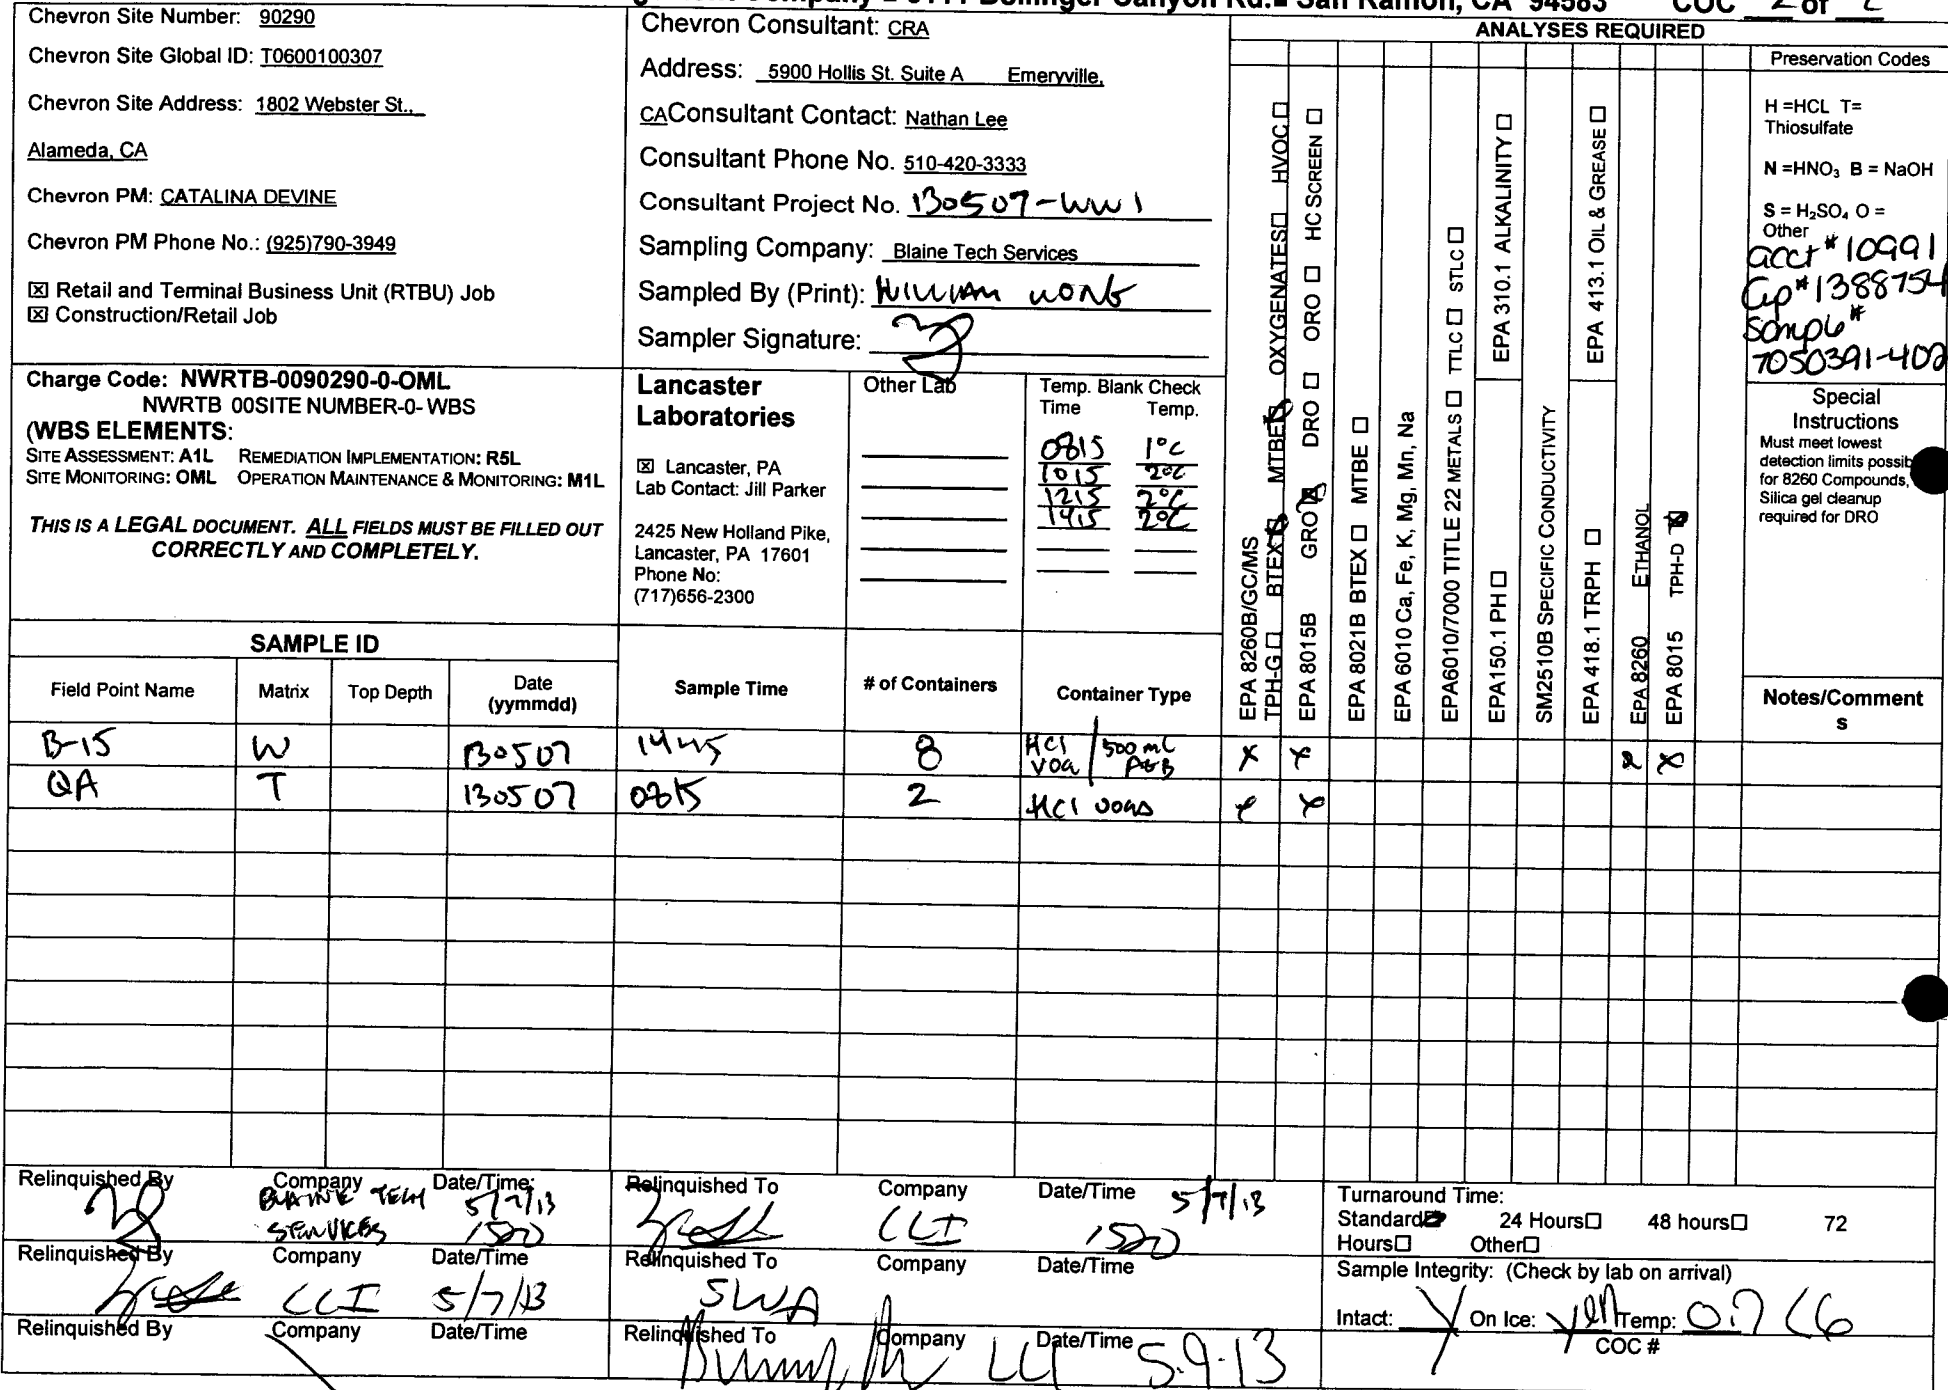 Company 6111 Bollinger Canyon Rd. San Ramon, CA 94583 COC 2 of 2
Chevron Site Number: 90290
Chevron Site Global ID: T0600100307
Chevron Site Address: 1802 Webster St.,
Alameda, CA
Chevron PM: CATALINA DEVINE
Chevron PM Phone No.: (925)790-3949
☒ Retail and Terminal Business Unit (RTBU) Job
☒ Construction/Retail Job
Chevron Consultant: CRA
Address: 5900 Hollis St. Suite A Emeryville,
CAConsultant Contact: Nathan Lee
Consultant Phone No. 510-420-3333
Consultant Project No. 130507-WW1
Sampling Company: Blaine Tech Services
Sampled By (Print): WILLIAM WONG
Sampler Signature:
ANALYSES REQUIRED
Preservation Codes
H =HCL T=
Thiosulfate
N =HNO₃ B = NaOH
S = H₂SO₄ O =
Other
acct # 10991
Grp # 1388754
Sample #
7050391-402
Special
Instructions
Must meet lowest
detection limits possib
for 8260 Compounds,
Silica gel cleanup
required for DRO
Notes/Comment
s
Charge Code: NWRTB-0090290-0-OML
NWRTB 00SITE NUMBER-0- WBS
(WBS ELEMENTS:
SITE ASSESSMENT: A1L REMEDIATION IMPLEMENTATION: R5L
SITE MONITORING: OML OPERATION MAINTENANCE & MONITORING: M1L
THIS IS A LEGAL DOCUMENT. ALL FIELDS MUST BE FILLED OUT
CORRECTLY AND COMPLETELY.
Lancaster
Laboratories
☒ Lancaster, PA
Lab Contact: Jill Parker
2425 New Holland Pike,
Lancaster, PA 17601
Phone No:
(717)656-2300
Other Lab
Temp. Blank Check
Time Temp.
0815 1°C
1015 2°C
1215 2°C
1415 2°C
EPA 8260B/GC/MS
TPH-G ☐ BTEX ☒ MTBE ☒ OXYGENATES ☐ HVOC ☐
EPA 8015B GRO ☒ DRO ☐ ORO ☐ HC SCREEN ☐
EPA 8021B BTEX ☐ MTBE ☐
EPA 6010 Ca, Fe, K, Mg, Mn, Na
EPA6010/7000 TITLE 22 METALS ☐ TTLC ☐ STLC ☐
EPA150.1 PH ☐
EPA 310.1 ALKALINITY ☐
SM2510B SPECIFIC CONDUCTIVITY
EPA 418.1 TRPH ☐
EPA 413.1 OIL & GREASE ☐
EPA 8260 ETHANOL
EPA 8015 TPH-D ☒
SAMPLE ID
Field Point Name Matrix Top Depth Date
(yymmdd) Sample Time # of Containers Container Type
B-15 W 130507 1445 8 HCl VOA / 500 mL AGB X X X X
QA T 130507 0815 2 HCl VOAs X X
Relinquished By Company Date/Time: Relinquished To Company Date/Time
BLAINE TECH SERVICES 5/7/13 1520 LLI 5/7/13 1520
Relinquished By Company Date/Time Relinquished To Company Date/Time
LLI 5/7/13 SWA
Relinquished By Company Date/Time Relinquished To Company Date/Time
LLI 5-9-13
Turnaround Time:
Standard☒ 24 Hours☐ 48 hours☐ 72
Hours☐ Other☐
Sample Integrity: (Check by lab on arrival)
Intact: Y On Ice: yes Temp: 0.7
COC #